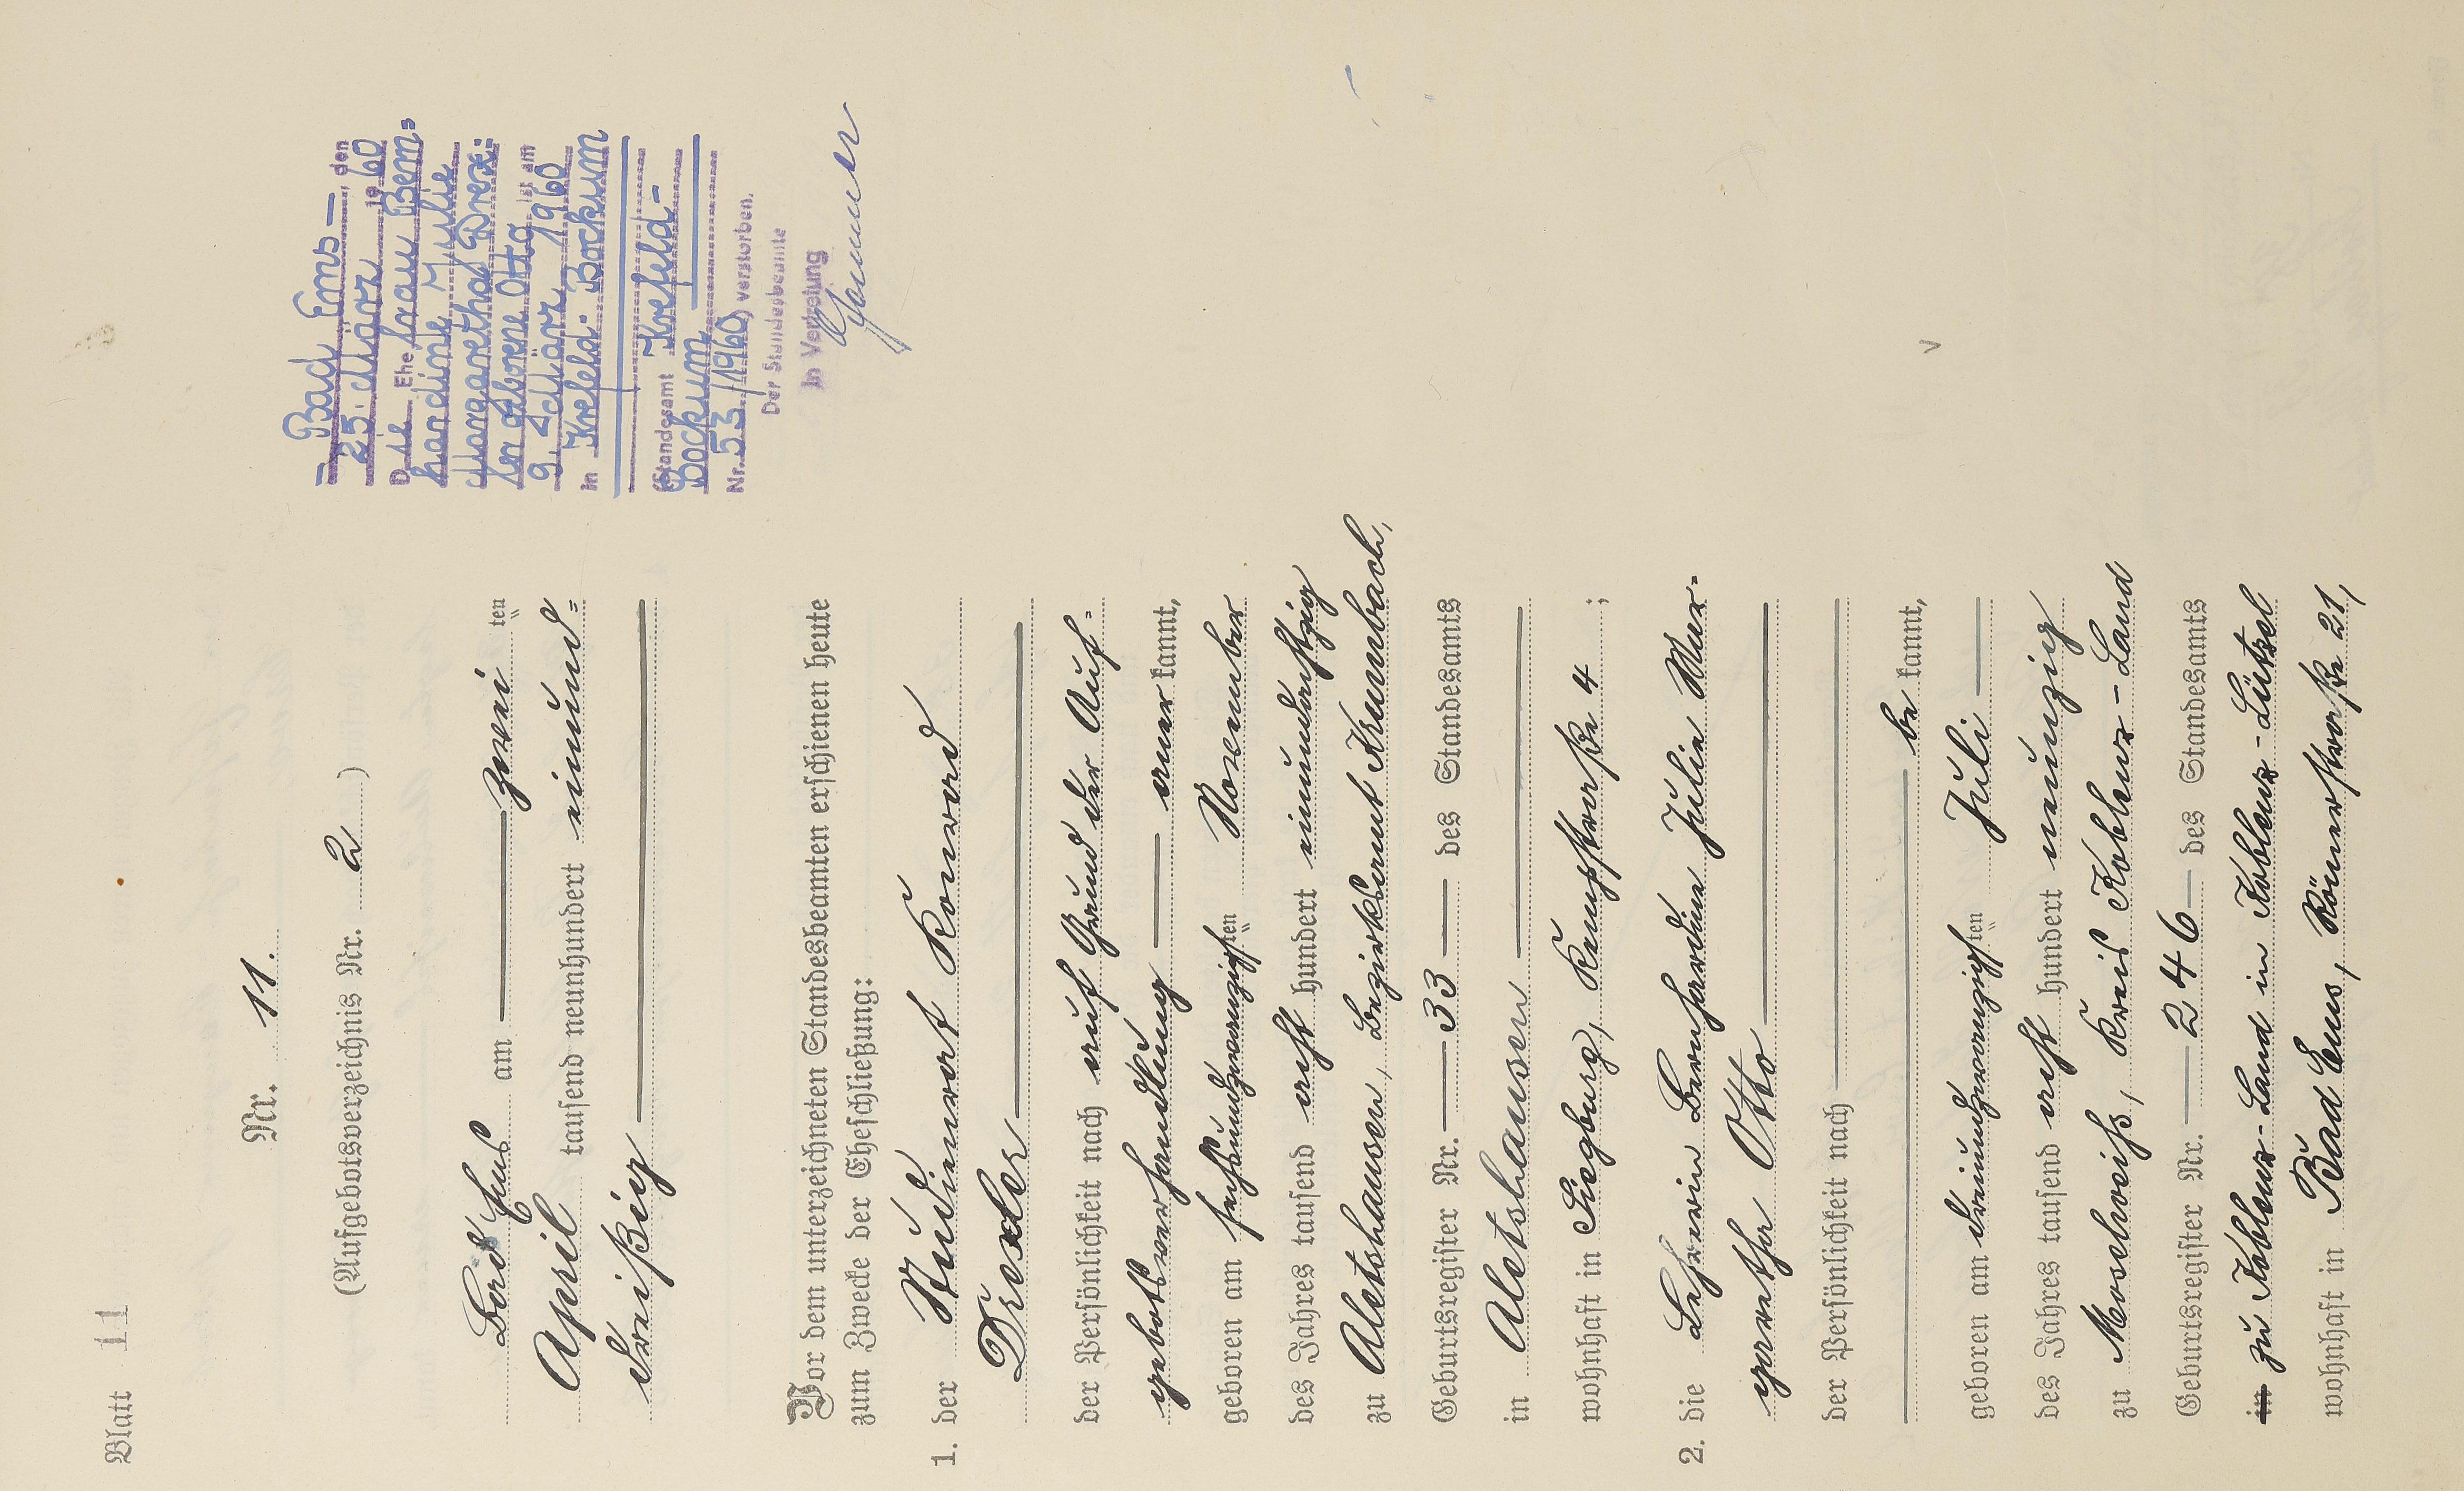 Blatt 11
Nr. 11.
(Aufgebotsverzeichnis Nr. 2)
Bad Ems am zwei ten
April tausend neunhundert einund=
dreißig
Vor dem unterzeichneten Standesbeamten erschienen heute
zum Zwecke der Eheschließung:
1. der Studienrat Konrad
Drexler
der Persönlichkeit nach auf Grund der Auf=
gebotsverhandlung anerkannt,
geboren am sechsundzwanzigsten November
des Jahres tausend acht hundert einundachtzig
zu Aletshausen, Bezirksamt Krumbach,
Geburtsregister Nr. 33 des Standesamts
in Aletshausen
wohnhaft in Siegburg, Kampstraße 4 ;
2. die Lehrerin Bernhardine Julie Mar=
garetha Otto
der Persönlichkeit nach
bekannt,
geboren am dreiundzwanzigsten Juli
des Jahres tausend acht hundert neunzig
zu Moselweiß, Kreis Koblenz-Land
Geburtsregister Nr. 246 des Standesamts
in zu Koblenz-Land in Koblenz-Lützel
wohnhaft in Bad Ems, Römerstraße 21,
Bad Ems, den
25. März 1960
Die Ehefrau Bern=
hardine Julie
Margaretha Drex=
ler geborene Otto ist am
9. März 1960
in Krefeld-Bockum
(Standesamt Krefeld-
Bockum
Nr. 53/1960) verstorben.
Der Standesbeamte
In Vertretung